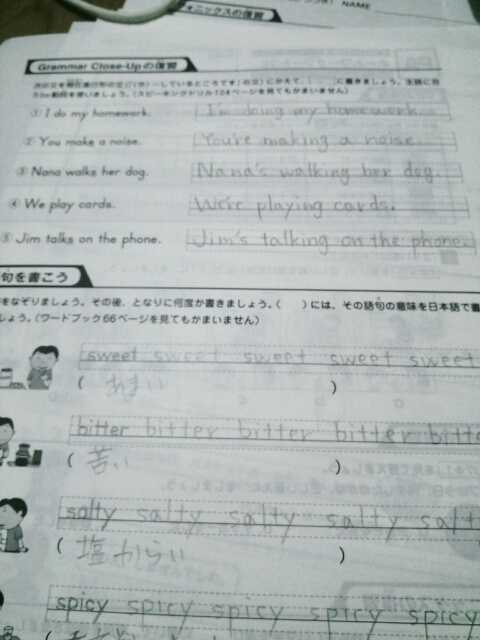 NAME
ォニックスの復習
Grammar Close-Upの復習
に書きましょう。主語に合
う 動詞を使いましょう。(スピーキングドリル124ページを見てもかまいません)
① I do my homework. I'm doing my homework.
② You make a noise. You're making a noise.
③ Nana walks her dog. Nana's walking her dog.
④ We play cards. We're playing cards.
⑤ Jim talks on the phone. Jim's talking on the phone.
句を書こう
をなぞりましょう。その後、となりに何度か書きましょう。( )には、その語句の意味を日本語で書
しょう。(ワードブック66ページを見てもかまいません)
sweet sweet sweet sweet sweet
( あまい )
bitter bitter bitter bitter bitte
( 苦い )
salty salty salty salty salt
( 塩からい )
spicy spicy spicy spicy spicy